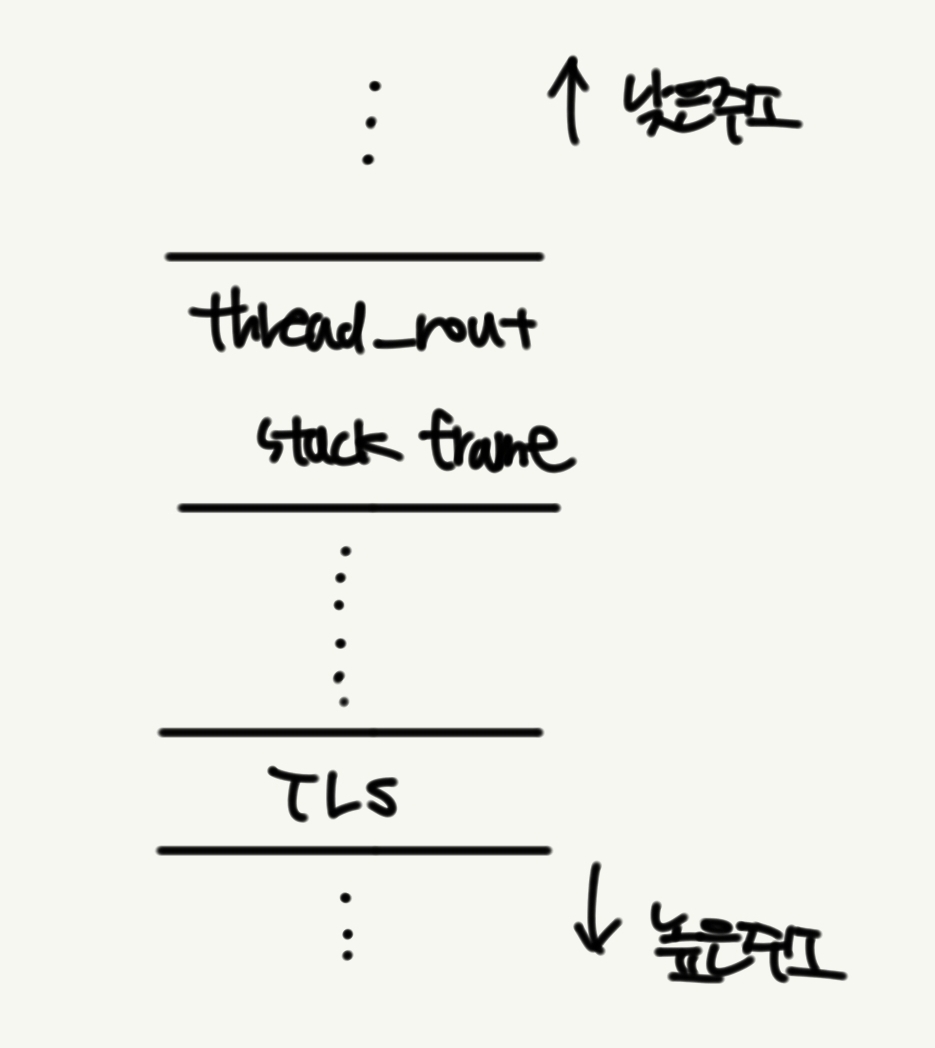 ↑ 낮은주소
thread_rout
stack frame
TLS
↓ 높은주소